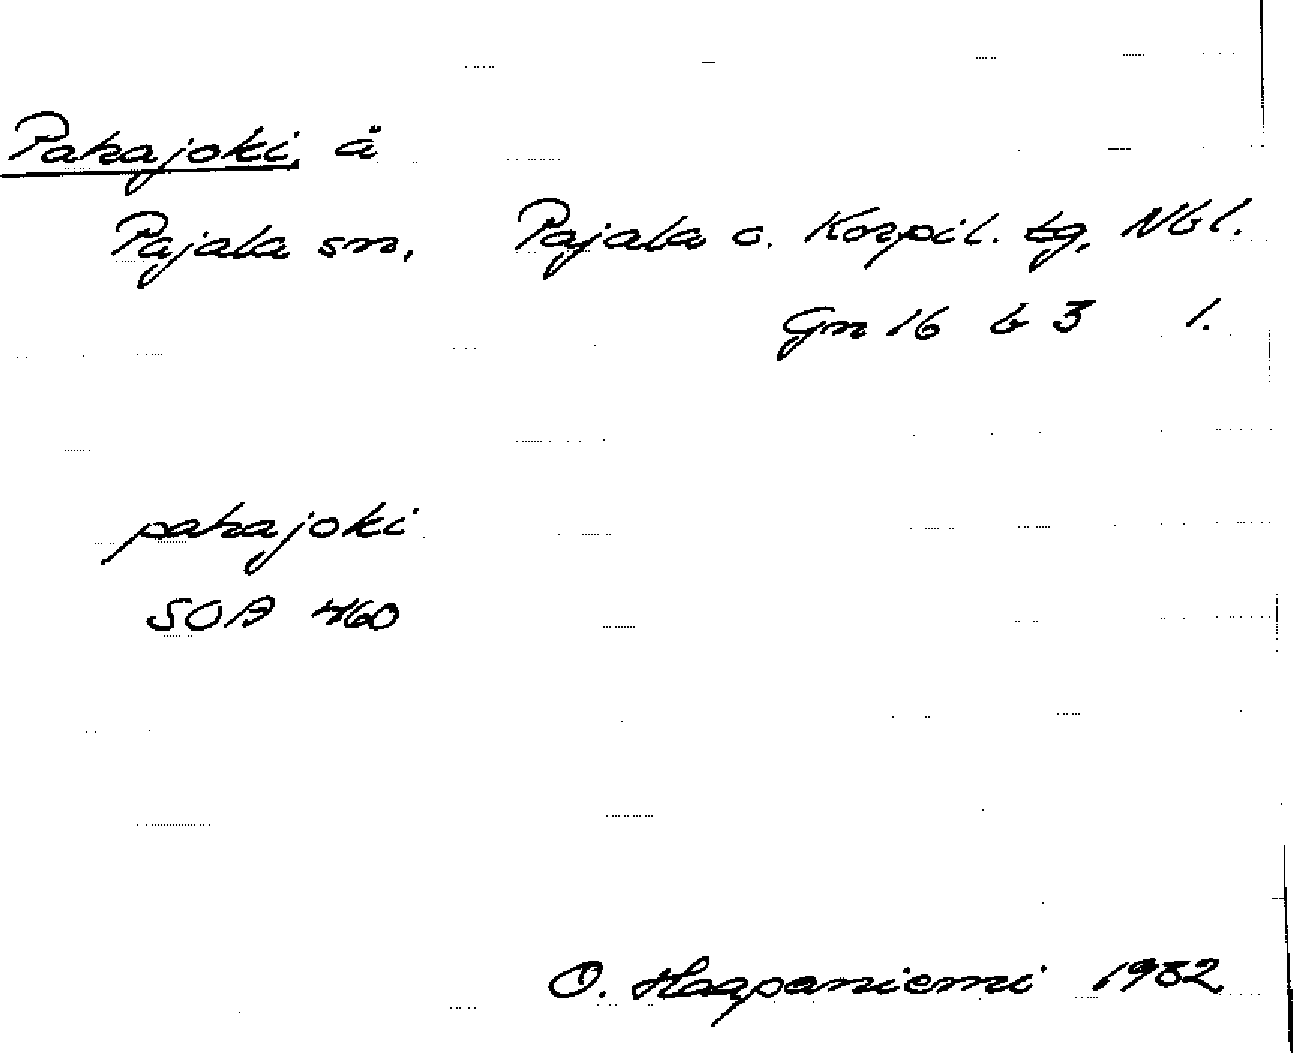 Pahajoki, å
Pajala sn, Pajala o. Korpil. tg, Nbl.
Gn 16 b 3 1.
pahajoki
SOA 460
O. Haapaniemi 1932